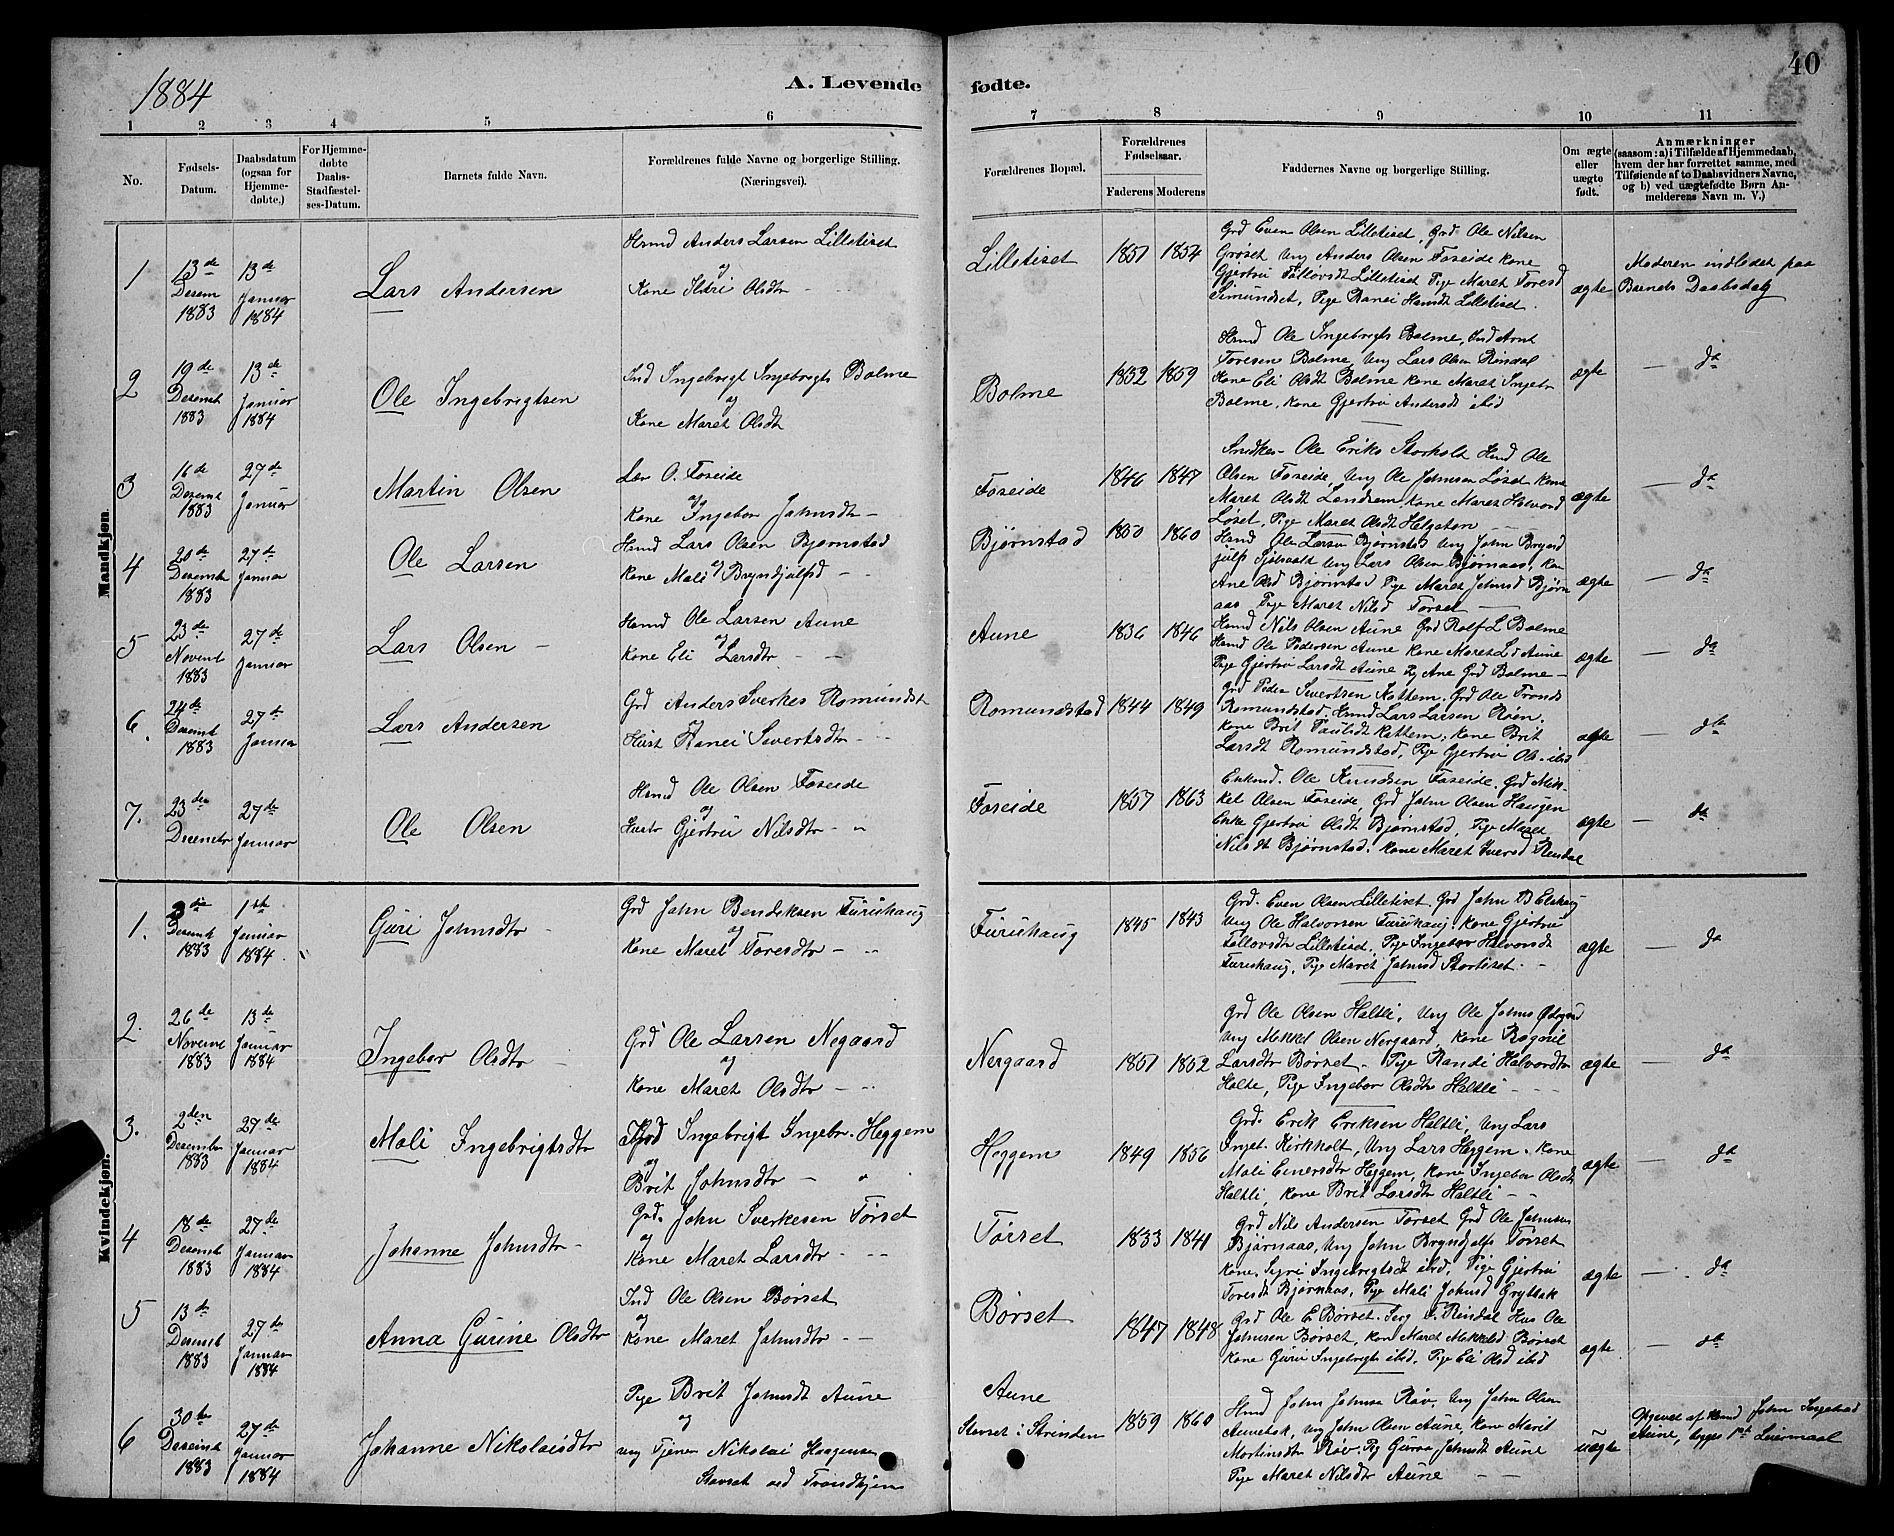 1884
A. Levende fødte.
40
1 2 3 4 5 6 7 8 9 10 11
No.
Fødsels-Datum.
Daabsdatum (ogsaa for Hjemme-døbte.)
For Hjemme-døbte Daabs-Stadfæstel-ses-Datum.
Barnets fulde Navn.
Forældrenes fulde Navne og borgerlige Stilling.
(Næringsvei).
Forældrenes Bopæl.
Forældrenes Fødselsaar.
Faderens Moderens
Faddernes Navne og borgerlige Stilling.
Om ægte eller uægte født.
Anmærkninger
(saasom: a) i Tilfælde af Hjemmedaab,
hvem der har forrettet samme, med
Tilføiende af to Daabsvidners Navne,
og b) ved uægtefødte Børn An-
melderens Navn m. V.)
Mandkjøn.
1
13de Desem 1883
13de Januar 1884
Lars Andersen
Hmd Anders Larsen Lilletiset
og
Kone Sidri Olsdtr
Lilletiset
1851 1854
Grd Even Olsen Lilletiset, Grd Ole Nilsen
Grøset Ung Anders Olsen Foseide kone
Gjertru Follovsdt Lilletiset Pige Maret Toresd
Simundset, Pige Ranei Hamdt Lilletiset.
ægte
Moderen indledet paa
Barnets Daabsdag
2
19de Desemb 1883
13de Januar 1884
Ole Ingebrigtsen
Ind Ingebrigt Ingebrigts Bolme
og
Kone Maret Olsdt
Bolme
1852 1859
Hmd Ole Ingebrigts Bolme, Ind Arnt
Toresen Bolme, Ung Lars Olsen Rindal
Kone Eli Olsdt Bolme kone Maret Ingebr
Bolme, kone Gjertru Andersdt ibid
ægte
— da
3
16de Desemb 1883
27de Januar
Martin Olsen
Lær O. Foseide
og
Kone Ingebor Johnsdtr —
Foseide
1846 1847
Snedker Ole Eriks Storholt Hmd Ole
Olsen Foseide, Ung Ole Johnsen Løset kone
Maret Olsdt Landsem, kone Maret Halvord
Løset, Pige Maret Olsdt Helgeton
ægte
— da
4
20de Desemb 1883
27de Januar
Ole Larsen
Hmd Lars Olsen Bjørnstad
og
kone Mali Bryndjulfsd — —
Bjørnstad
1850 1860
Hmd Ole Larsen Bjørnstad Ung John Brynd
julfs Ung Lars Olsen Bjørnaas, kone
Ane Olsd Bjørnstad Pige Maret Johnsd Bjørn
aas Pige Maret Nilsd Torset —
ægte
— da
5
23de Novemb 1883
27de Januar
Lars Olsen —
Hmd Ole Larsen Aune
og
kone Eli Larsdtr — —
Aune
1836 1846
Hmd Nils Olsen Aune Grd Rolf L Bolme
Hmd Ole Pedersen Aune kone Maret L d Aune
Pige Gjertru Larsdt Aune Pg Ane Grd Bolme —
ægte
— da
6.
24de Desemb 1883
27de Januar
Lars Andersen
Grd Anders Sverkes Romundst
og
Hust Ranei Sivertsdtr — —
Romundstad
1844 1849
Grd Peder Sivertsen Kattem. Grd Ole Tronds
Romundstad, Hmd Lars Larsen Røen.
kone Brit Paulsdt Kattem, kone Brit
Larsdt Romundstad, Pige Gjertru Ols. ibid
ægte
— da
7.
23den Decembr
27de Januar
Ole Olsen
Hmd Ole Olsen Foseide
og
Hustr Gjertru Nilsdtr — —
Foseide
1857 1863
Enkmd. Ole Knudsen Foseide. Grd Mik-
kel Olsen Foseide, Grd John Olsen Haugen
Enke Gjertru Olsdt Bjørnstad, Pige Maret
Nilsdt Bjørnstad. kone Maret Iversd Rindal
ægte
— da
Kvindekjøn.
1.
Desemb 1883
1ste Januar 1884.
Guri Johnsdtr —
Grd John Bendiksen Furuhaug
og
kone Maret Toresdtr — —
Furuhaug
1845 1843
Grd. Even Olsen Lilletiset, Grd John B Elshaug
Ung Ole Halvorsen Furuhaug. kone Gjertru
Follovsdtr Lilletiset, Pige Ingebor Halvorsdt
Furuhaug, Pige Maret Johnsd Stortiset. —
ægte
— da
2.
26de Novemb 1883
13de Januar 1884
Ingebor Olsdtr —
Grd Ole Larsen Negaard
og
kone Maret Olsdtr — —
Nergaard
1851 1852
Grd Ole Olsen Haltli, Ung Ole Johns
Ung Mikkel Olsen Nergaard, kone Ragnil
Larsdtr Børset — Pige Randi Halvordtr
Holte, Pige Ingebor Olsdtr Haltli — —
ægte
— da
3.
2den Desember 1883
27de Januar 1884
Mali Ingebrigtsdtr
Grd Ingebrigt Ingebr. Heggem
og
Brit Johnsdtr — "
Heggem
1849 1856
Grd. Erik Eriksen Haltli, Ung Lars
Ingebr. Kirkholt, Ung Lars Heggem. kone
Mali Einersdtr Heggem, kone Ingebor Olsdt
Haltli, kone Brit Larsdtr Haltli — —
ægte
— da
4
18de Desemb 1883
27de Januar 1884
Johanne Johnsdtr —
Grd. John Sverkesen Tørset
og
kone Maret Larsdtr — —
Tørset
1833 1841
Grd Nils Andersen Tørset Grd Ole Johnsen
Bjørnaas, Ung John Bryndjulfs Tørset
kone Sigri Ingebrigtsdt ibid, Pige Gjertru
Toresdt Bjørnaas, Pige Mali Johnsd Gryttbak
ægte
— da
5
13de Desemb 1883
27de Januar 1884
Anna Gurine Olsdtr
Ind Ole Olsen Børset
og
kone Maret Johnsdtr — —
Børset
1847 1848
Grd Ole E. Børset. Serg Rindal Hus Ole
Johnsen Børset, kone Maret Mikkelsd Børset
kone Guru Ingebrigts ibid, Pige Eli Olsd ibid
ægte
— da
6
30te Desemb 1883
27de Januar 1884
Johanne Nikolaisdtr
Pige Brit Johnsdt Aune
og
ung Tjener Nikolai Hoogensen
Stavset ved Trondhjem
Aune
Stavset i Strinden
1859 1860
Hmd John Johnsen Røv, Ung John Olsen
Aunebak, Ung John Olsen Aune, kone Marit
Mortinsdtr Røv. Pg Gurva Johnsdt Aune
Pige Maret Nilsdtr Aune — —
uægte
Opgivet af Hmd John Ingebrd
Aune, begges 1ste Leiermaal